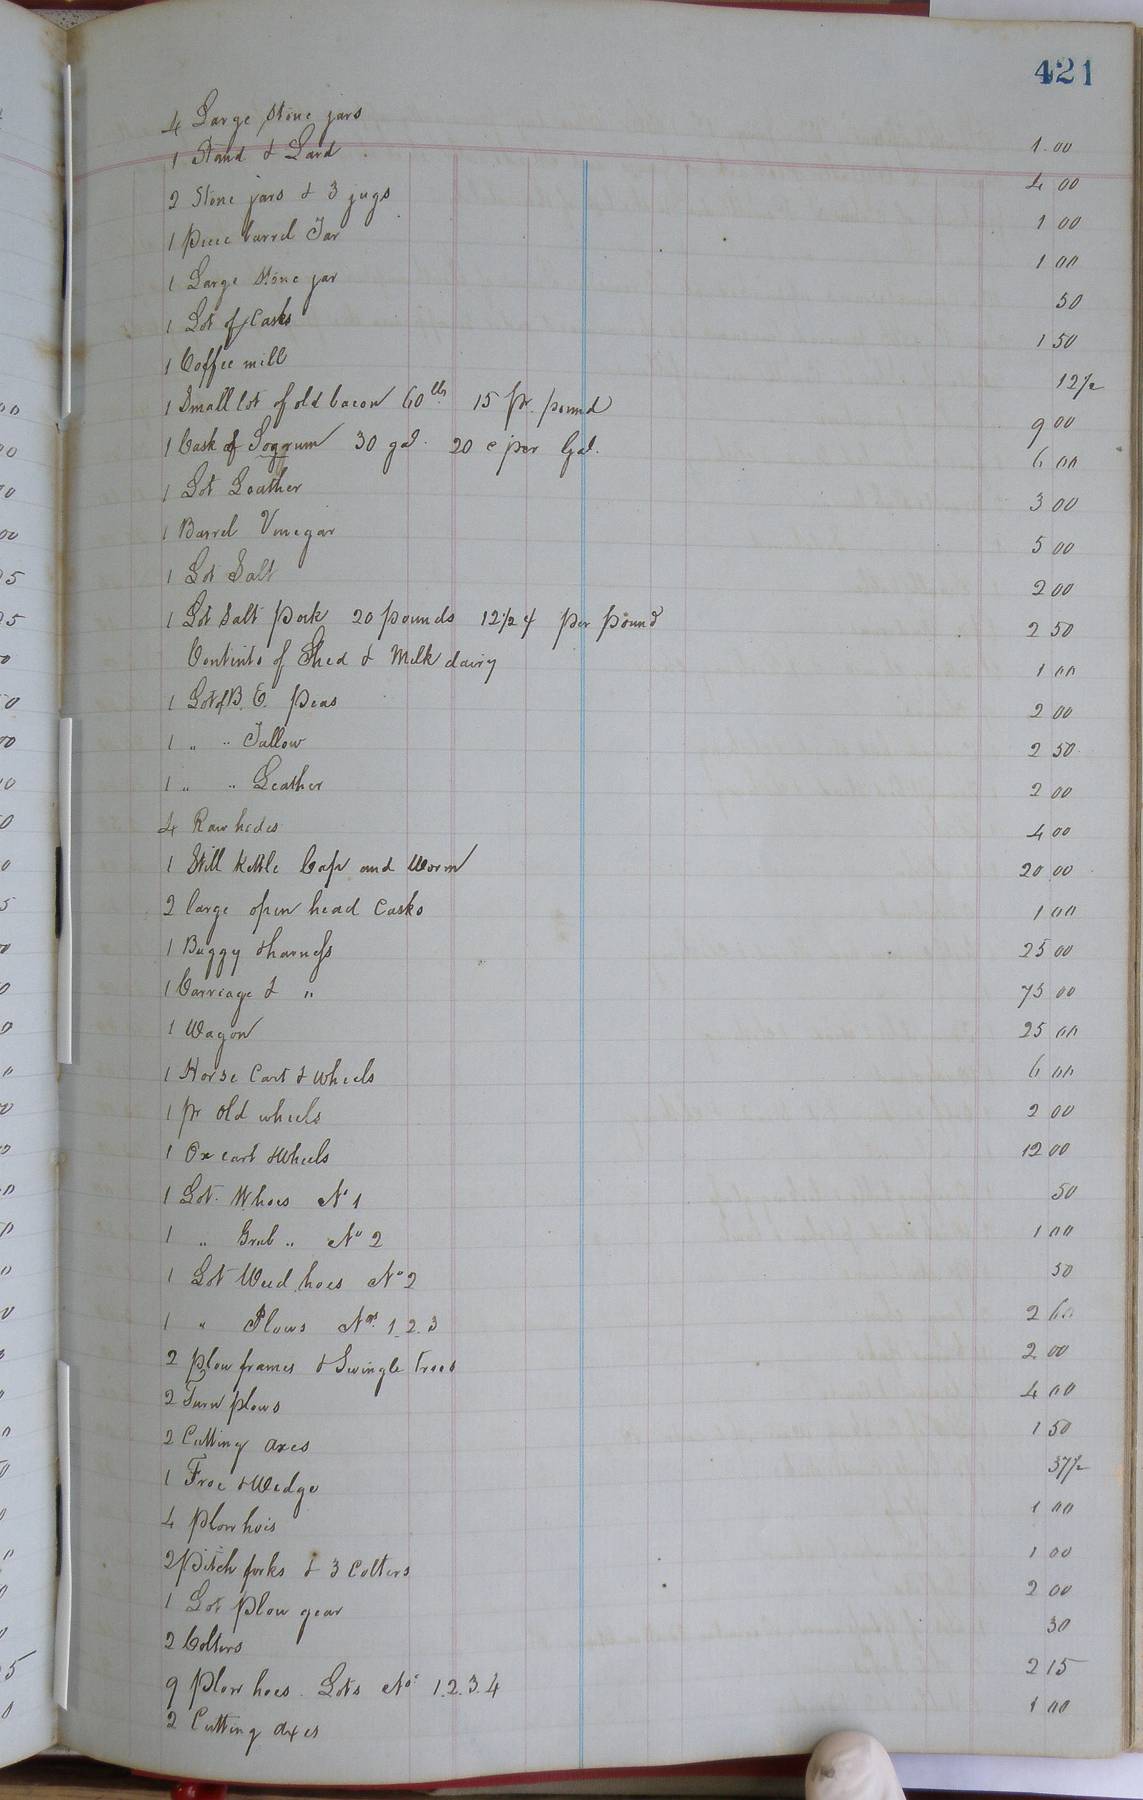 421
4 Large Stone jars 1.00
1 Stand & Lard 4 00
2 Stone jars & 3 jugs 1 00
1 Piece barrel Tar 1 00
1 Large Stone jar 50
1 Lot of Casks 1 50
1 Coffee mill 12½
1 Small lot of old bacon 60 lbs 15 pr. pound 9 00
1 Cask of Soggrum 30 gal. 20 c per Gal. 6 00
1 Lot Leather 3 00
1 Barrel Vinegar 5 00
1 Lot Salt 2 00
1 Lot Salt Pork 20 pounds 12½ ¢ per pound 2 50
Contints of Shed & Milk dairy 1 00
1 Lot of B. E. Peas 2 00
1 " " Tallow 2 50
1 " " Leather 2 00
4 Raw hides 4 00
1 Still Kettle Cap and Worm 20 00
2 large open head Casks 1 00
1 Buggy & harness 25 00
1 Carriage & " 75 00
1 Wagon 25 00
1 Horse Cart & Wheels 6 00
1 Pr Old wheels 2 00
1 Ox cart & Wheels 12 00
1 Lot. W hoes No 1 50
1 " Grub " No 2 1 00
1 Lot Weed hoes No 2 50
1 " Plows Nos. 1. 2. 3 2 60
2 plow frames & Swingle trees 2 00
2 Turn plows 4 00
2 Cutting axes 1 50
1 Froe & Wedge 37½
4 Plow hoes 1 00
2 Pitch forks & 3 Colters 1 00
1 Lot Plow gear 2 00
2 Colters 30
9 Plow hoes. Lots Nos 1. 2. 3. 4 2 15
2 Cutting axes 1 00